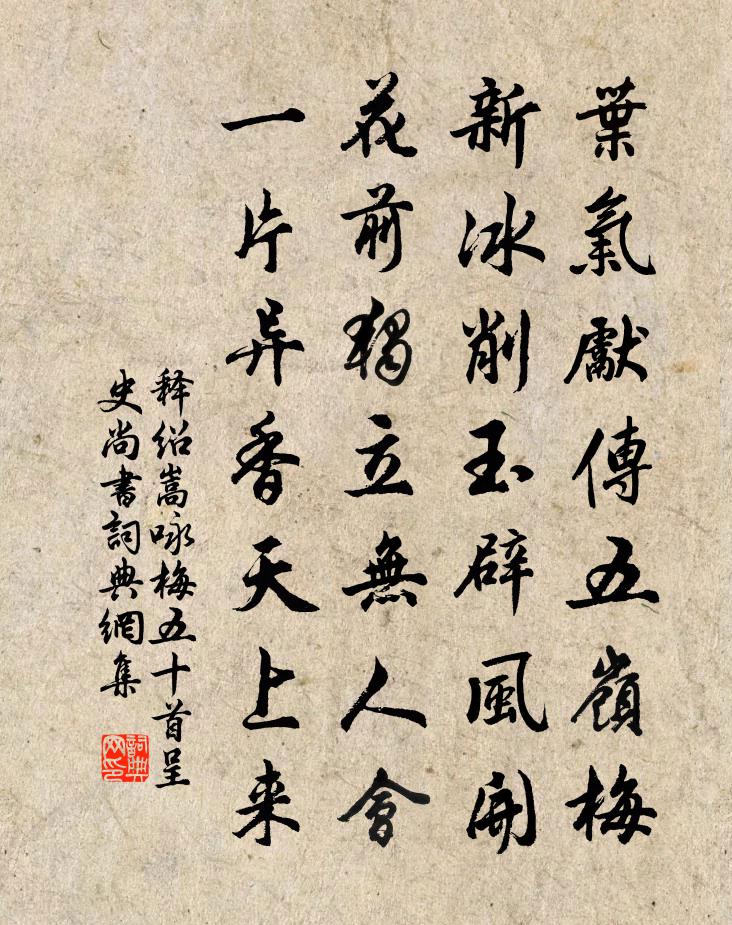 葉氣獻傳五嶺梅
新冰削玉辟風開
花前獨立無人會
一片异香天上来
释绍嵩咏梅五十首呈
史尚書詞典網集
詞典
网印